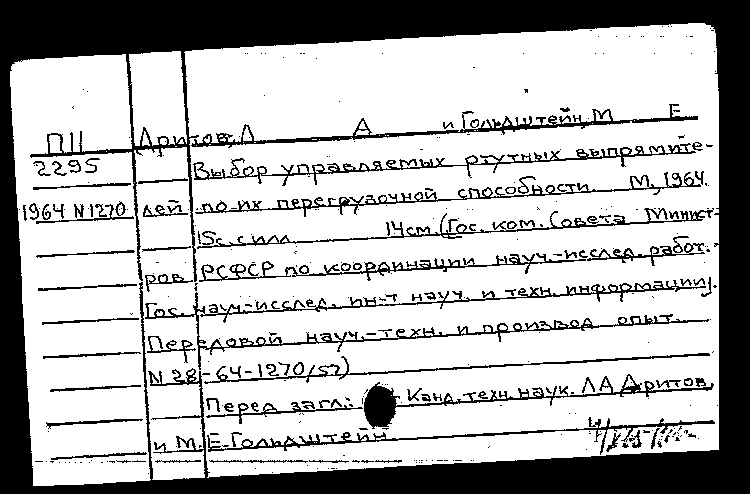 П11 Аритов, Л А и Гольдштейн, М Е
2295 Выбор управляемых ртутных выпрямите-
1964 N1270 лей по их перегрузочной способности. М., 1964.
15с. с илл. 14см. (Гос. ком. Совета Минист-
ров РСФСР по координации науч.-исслед. работ.
Гос. науч.-исслед. ин-т науч. и техн. информации.
Передовой науч.-техн. и производ опыт.
N 28-64-1270/52)
Перед загл.: Канд. техн. наук. Л А Аритов,
и М. Е. Гольдштейн.